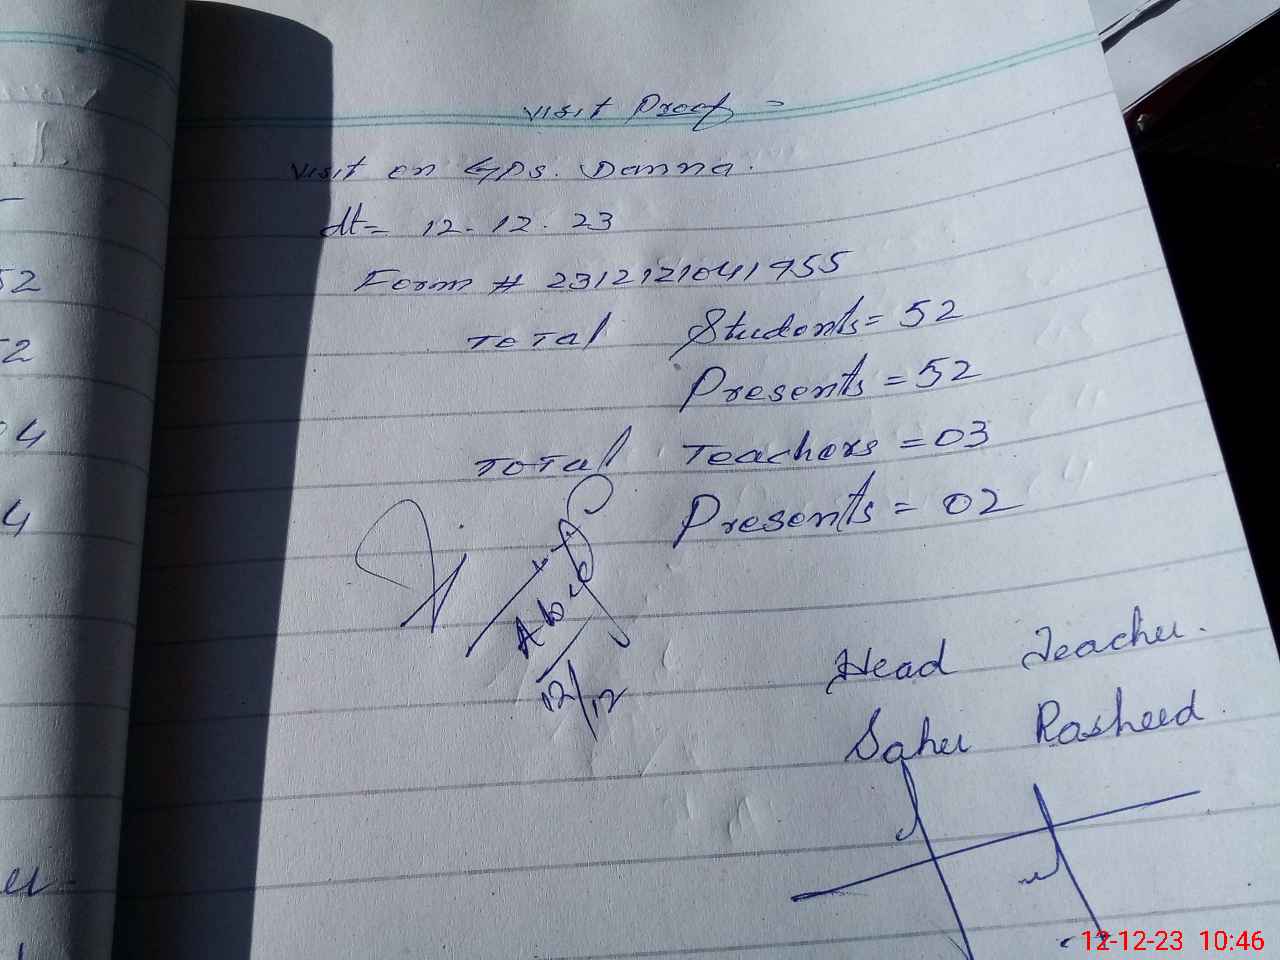 Visit Proof =
Visit on GPS. Danna.
dt= 12-12.23
Form # 2312121041955
Total Students = 52
Presents = 52
Total Teachers = 03
Presents = 02
12/12
Head Teacher.
Saher Rasheed.
52
4
4
12-12-23 10:46